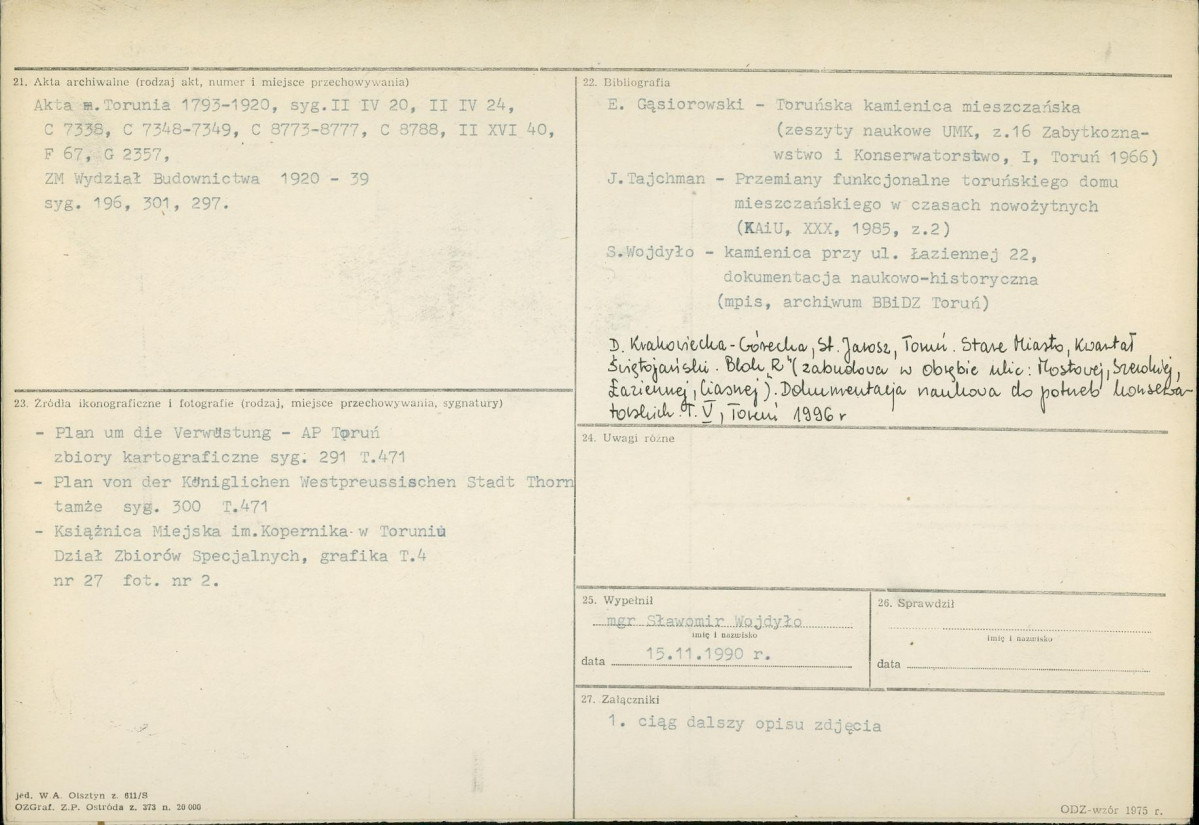 21. Akta archiwalne (rodzaj akt, numer i miejsce przechowywania)
Akta m.Torunia 1793-1920, syg.II IV 20, II IV 24,
C 7338, C 7348-7349, C 8773-8777, C 8788, II XVI 40,
F 67, G 2357,
ZM Wydział Budownictwa 1920 - 39
syg. 196, 301, 297.
22. Bibliografia
E. Gąsiorowski - Toruńska kamienica mieszczańska
(zeszyty naukowe UMK, z.16 Zabytkozna-
wstwo i Konserwatorstwo, I, Toruń 1966)
J.Tajchman - Przemiany funkcjonalne toruńskiego domu
mieszczańskiego w czasach nowożytnych
(KAiU, XXX, 1985, z.2)
S.Wojdyło - kamienica przy ul. Łaziennej 22,
dokumentacja naukowo-historyczna
(mpis, archiwum BBiDZ Toruń)
D. Krakowiecka-Górecka, St. Jarosz, Toruń. Stare Miasto, Kwartał
Świętojański. Blok „R" (zabudowa w obrębie ulic: Mostowej, Szerokiej,
Łaziennej, Ciasnej). Dokumentacja naukowa do potrzeb konserwa-
torskich. T. V, Toruń 1996 r
23. Źródła ikonograficzne i fotografie (rodzaj, miejsce przechowywania, sygnatury)
- Plan um die Verwüstung - AP Toruń
zbiory kartograficzne syg. 291 T.471
- Plan von der Königlichen Westpreussischen Stadt Thorn
tamże syg. 300 T.471
- Książnica Miejska im.Kopernika w Toruniu
Dział Zbiorów Specjalnych, grafika T.4
nr 27 fot. nr 2.
24. Uwagi różne
25. Wypełnił
mgr Sławomir Wojdyło
imię i nazwisko
data 15.11.1990 r.
26. Sprawdził
imię i nazwisko
data
27. Załączniki
1. ciąg dalszy opisu zdjęcia
jed. W.A. Olsztyn z. 611/S
OZGraf. Z.P. Ostróda z. 373 n. 20 000
ODZ-wzór 1975 r.